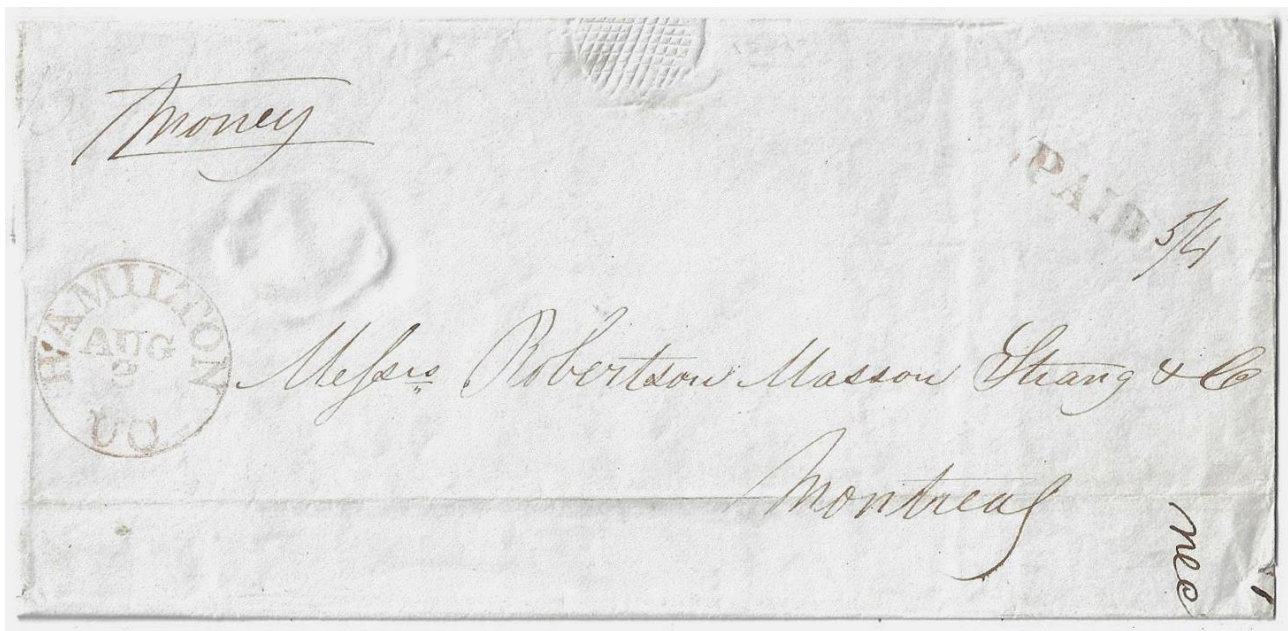 Money
PAID
5/4
HAMILTON
AUG
UC
Messrs Robertson Masson Strang & Co
Montreal